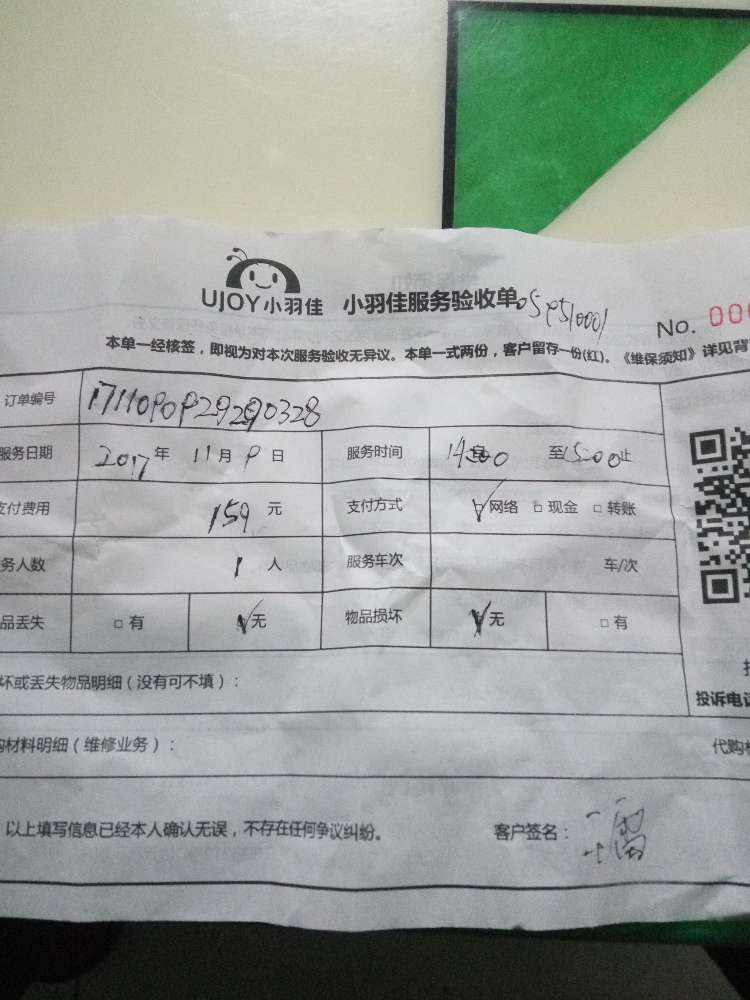 UJOY小羽佳 小羽佳服务验收单 059510001
No. 000
本单一经核签，即视为对本次服务验收无异议。本单一式两份，客户留存一份(红)。《维保须知》详见背
订单编号 1711090929290328
服务日期 2017年 11月 9日 服务时间 14:00 至15:00止
支付费用 159 元 支付方式 ☑网络 □ 现金 □ 转账
务人数 1 人 服务车次 车/次
品丢失 □ 有 ☑无 物品损坏 ☑无 □ 有
坏或丢失物品明细（没有可不填）：
投诉电话
购材料明细（维修业务）： 代购
以上填写信息已经本人确认无误，不存在任何争议纠纷。 客户签名：